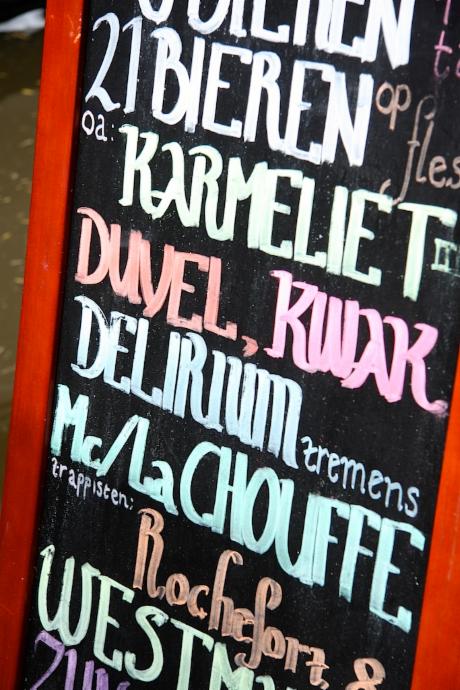 BIEREN
21 BIEREN op fles
oa: KARMELIET
DUVEL, KWAK
DELIRIUM tremens
Mc/La CHOUFFE
trappisten: Rochefort &